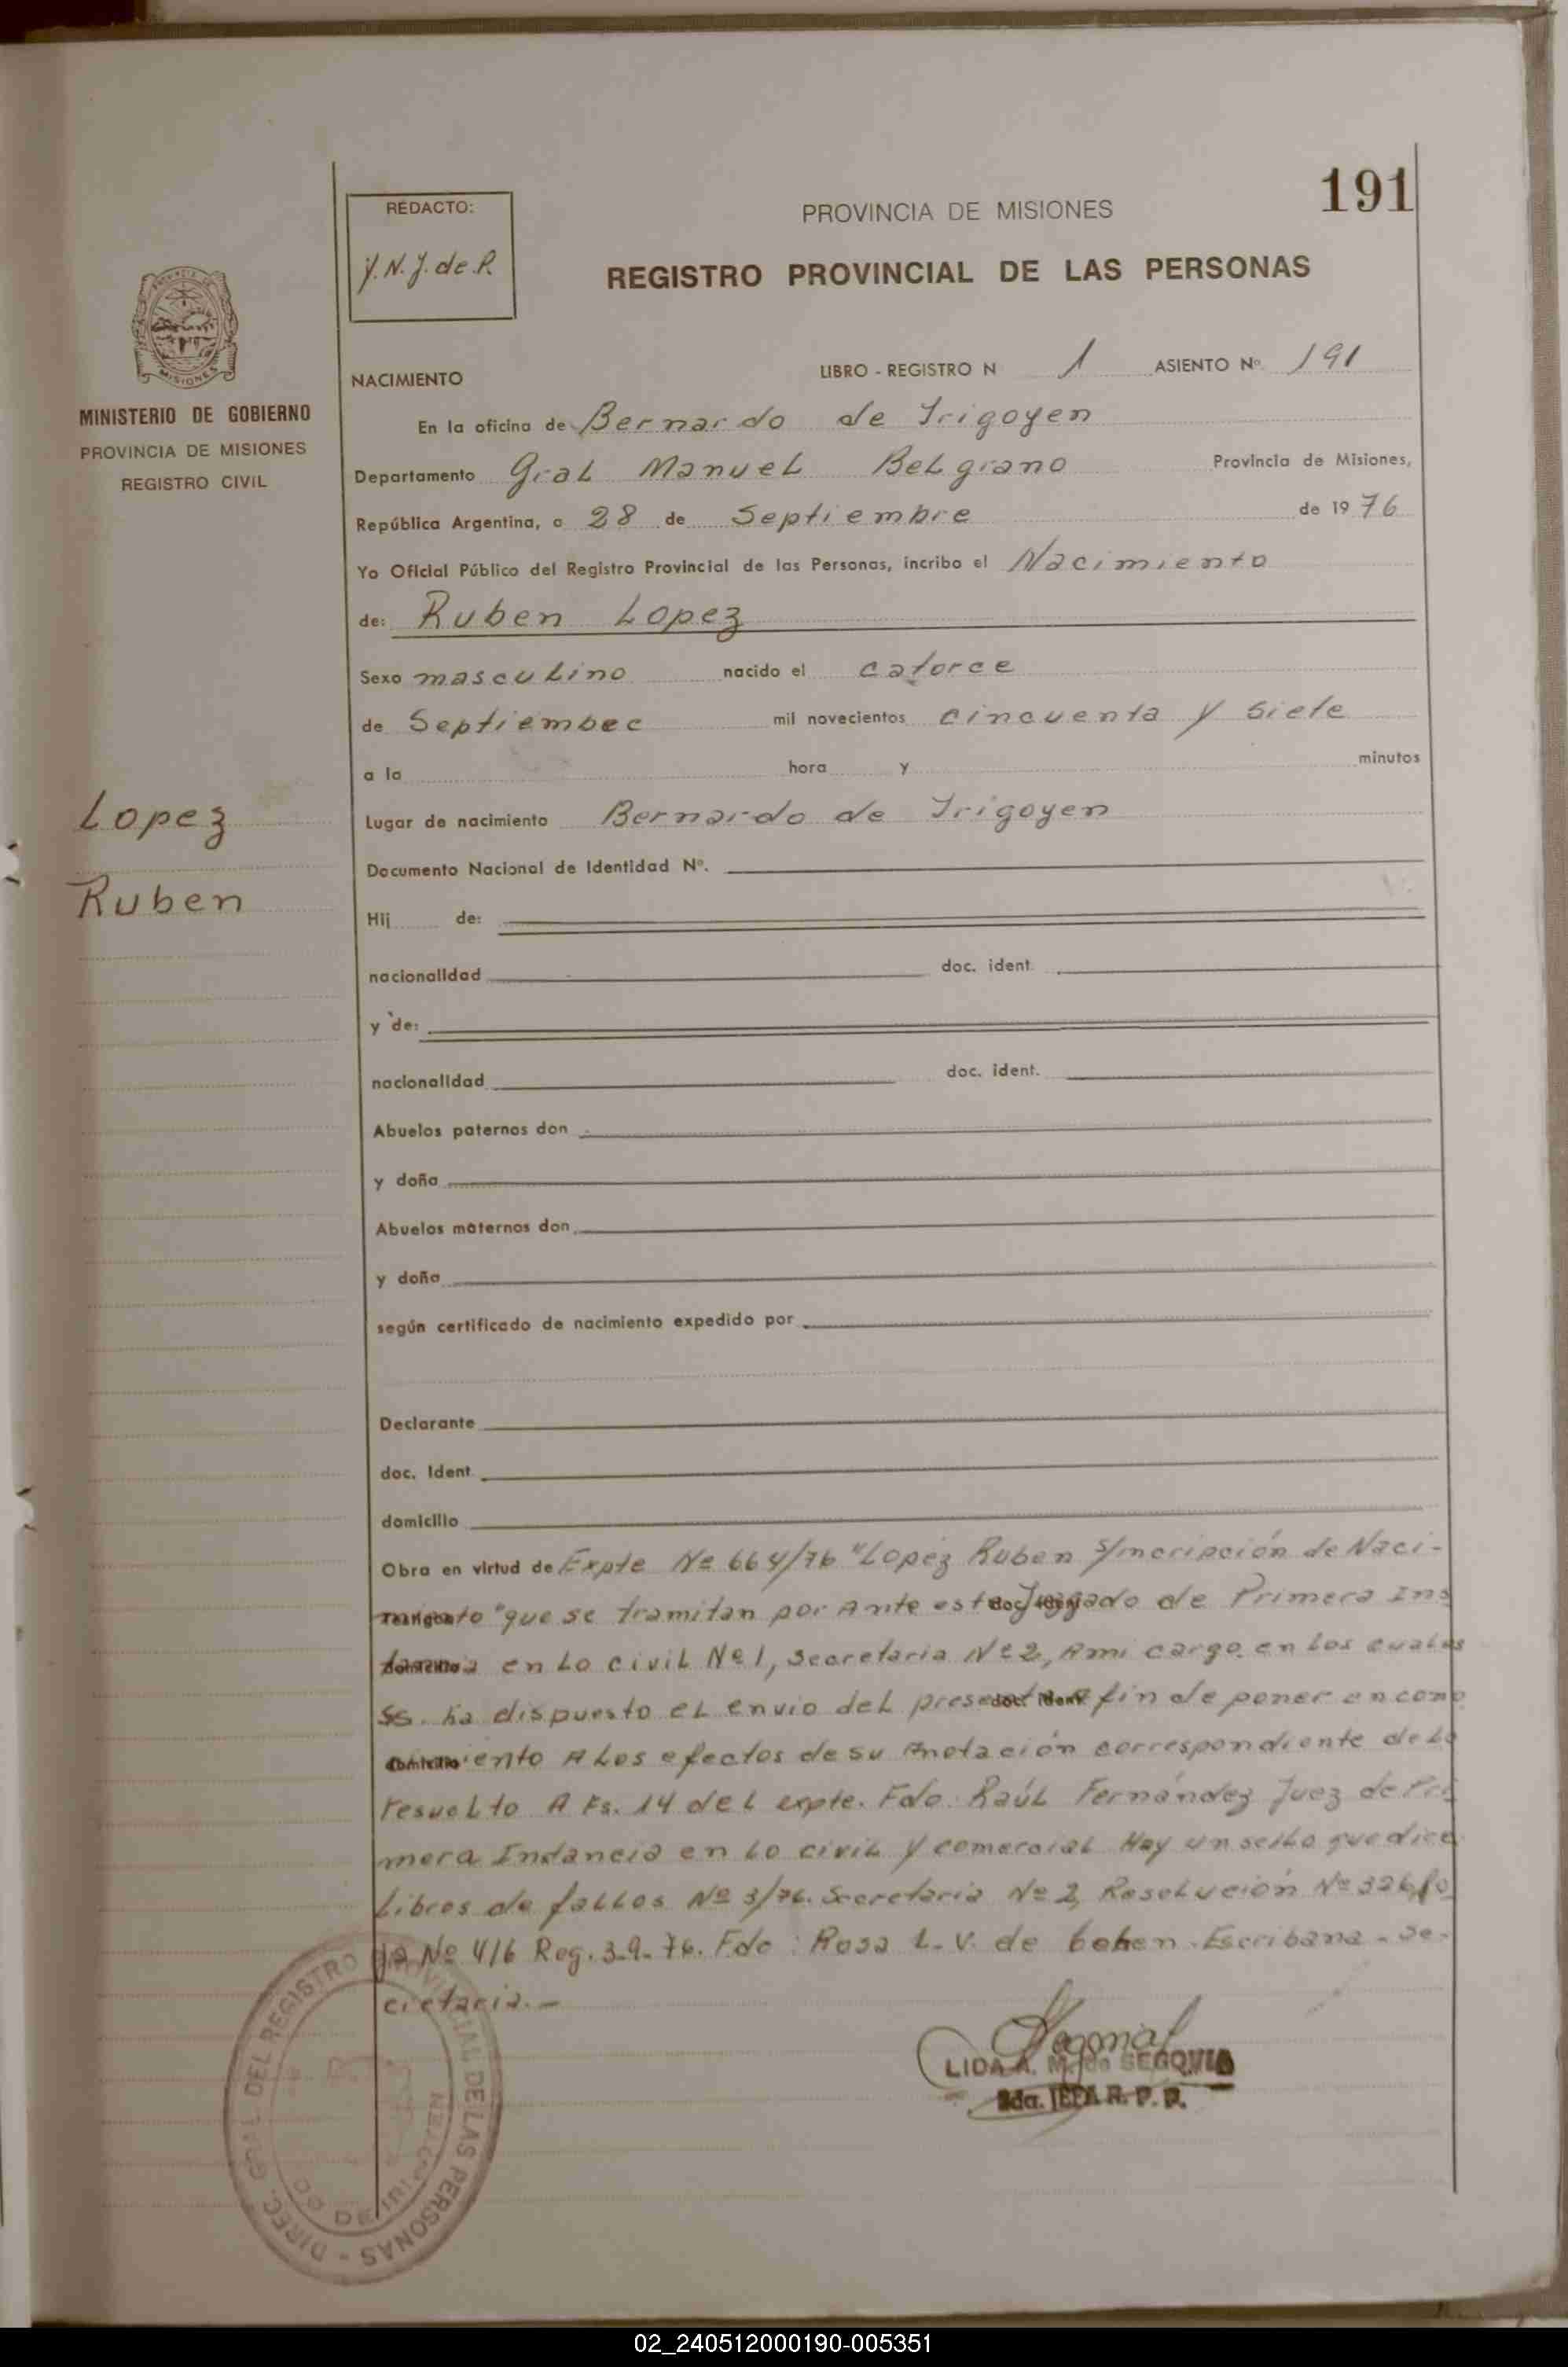 191
REDACTO:
Y.N.J. de P.
PROVINCIA DE MISIONES
REGISTRO PROVINCIAL DE LAS PERSONAS
MISIONES
MINISTERIO DE GOBIERNO
PROVINCIA DE MISIONES
REGISTRO CIVIL
NACIMIENTO LIBRO - REGISTRO N 1 ASIENTO Nº. 191
En la oficina de Bernardo de Irigoyen
Departamento Gral Manuel Belgrano Provincia de Misiones,
República Argentina, a 28 de Septiembre de 1976
Yo Oficial Público del Registro Provincial de las Personas, incribo el Nacimiento
de: Ruben Lopez
Sexo masculino nacido el catorce
de Septiembec mil novecientos cincuenta y siete
a la hora y minutos
Lopez
Ruben
Lugar de nacimiento Bernardo de Irigoyen
Documento Nacional de Identidad Nº.
Hij de:
nacionalidad doc. ident.
y de:
nacionalidad doc. ident.
Abuelos paternos don
y doña
Abuelos maternos don
y doña
según certificado de nacimiento expedido por
Declarante
doc. Ident.
domicilio
Obra en virtud de Expte Nº 664/76 "Lopez Ruben s/incripción de Naci-
miento" que se tramitan por Ante este Juzgado de Primera Ins
tancia en Lo civil Nº 1, secretaria Nº 2, Ami cargo. en los cuales
SS. ha dispuesto el envio del presente a fin de poner en cono
cimiento A Los efectos de su Anotación correspondiente de Lo
resuelto A Fs. 14 del expte. Fdo: Raúl Fernández Juez de Pri
mera Instancia en Lo civil y comercial Hay un sello que dice
Libros de fallos Nº 3/76. Secretaria Nº 2, Resolución Nº 326 fo
ja Nº 416 Reg. 3-9-76. Fdo: Rosa L. V. de Escribana - Se-
cretaria.-
LIDA A. M. de SEGOVIA
2da. JEFA R. P. P.
DIREC. GRAL DEL REGISTRO PROVINCIAL DE LAS PERSONAS
02_240512000190-005351